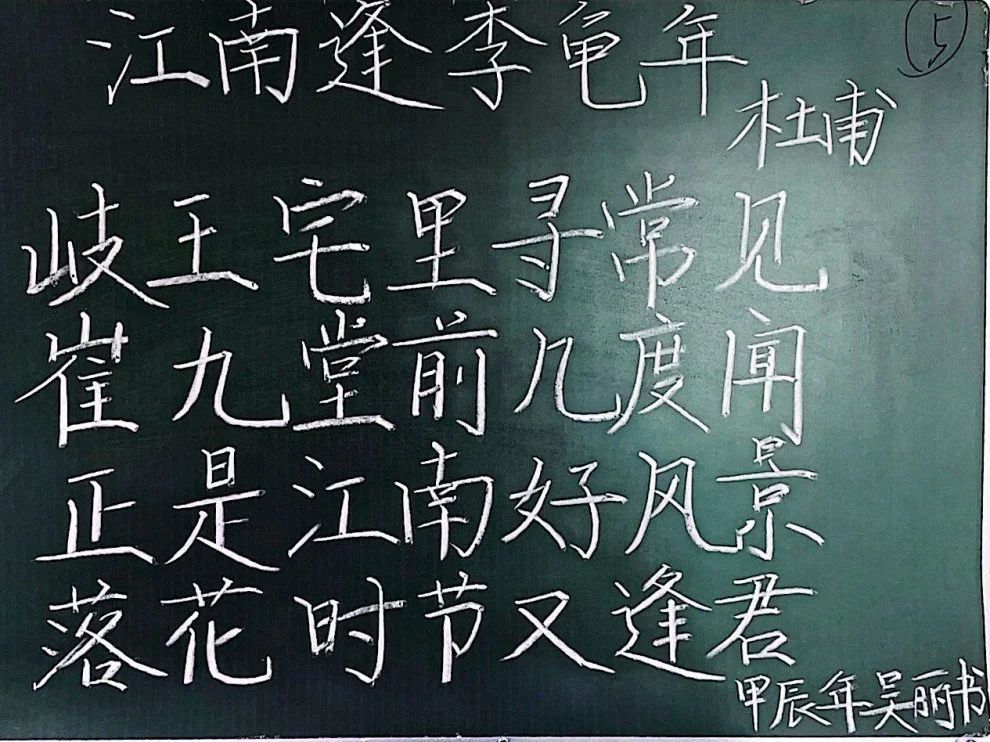 江南逢李龟年
5
杜甫
岐王宅里寻常见
崔九堂前几度闻
正是江南好风景
落花时节又逢君
甲辰年吴丽书